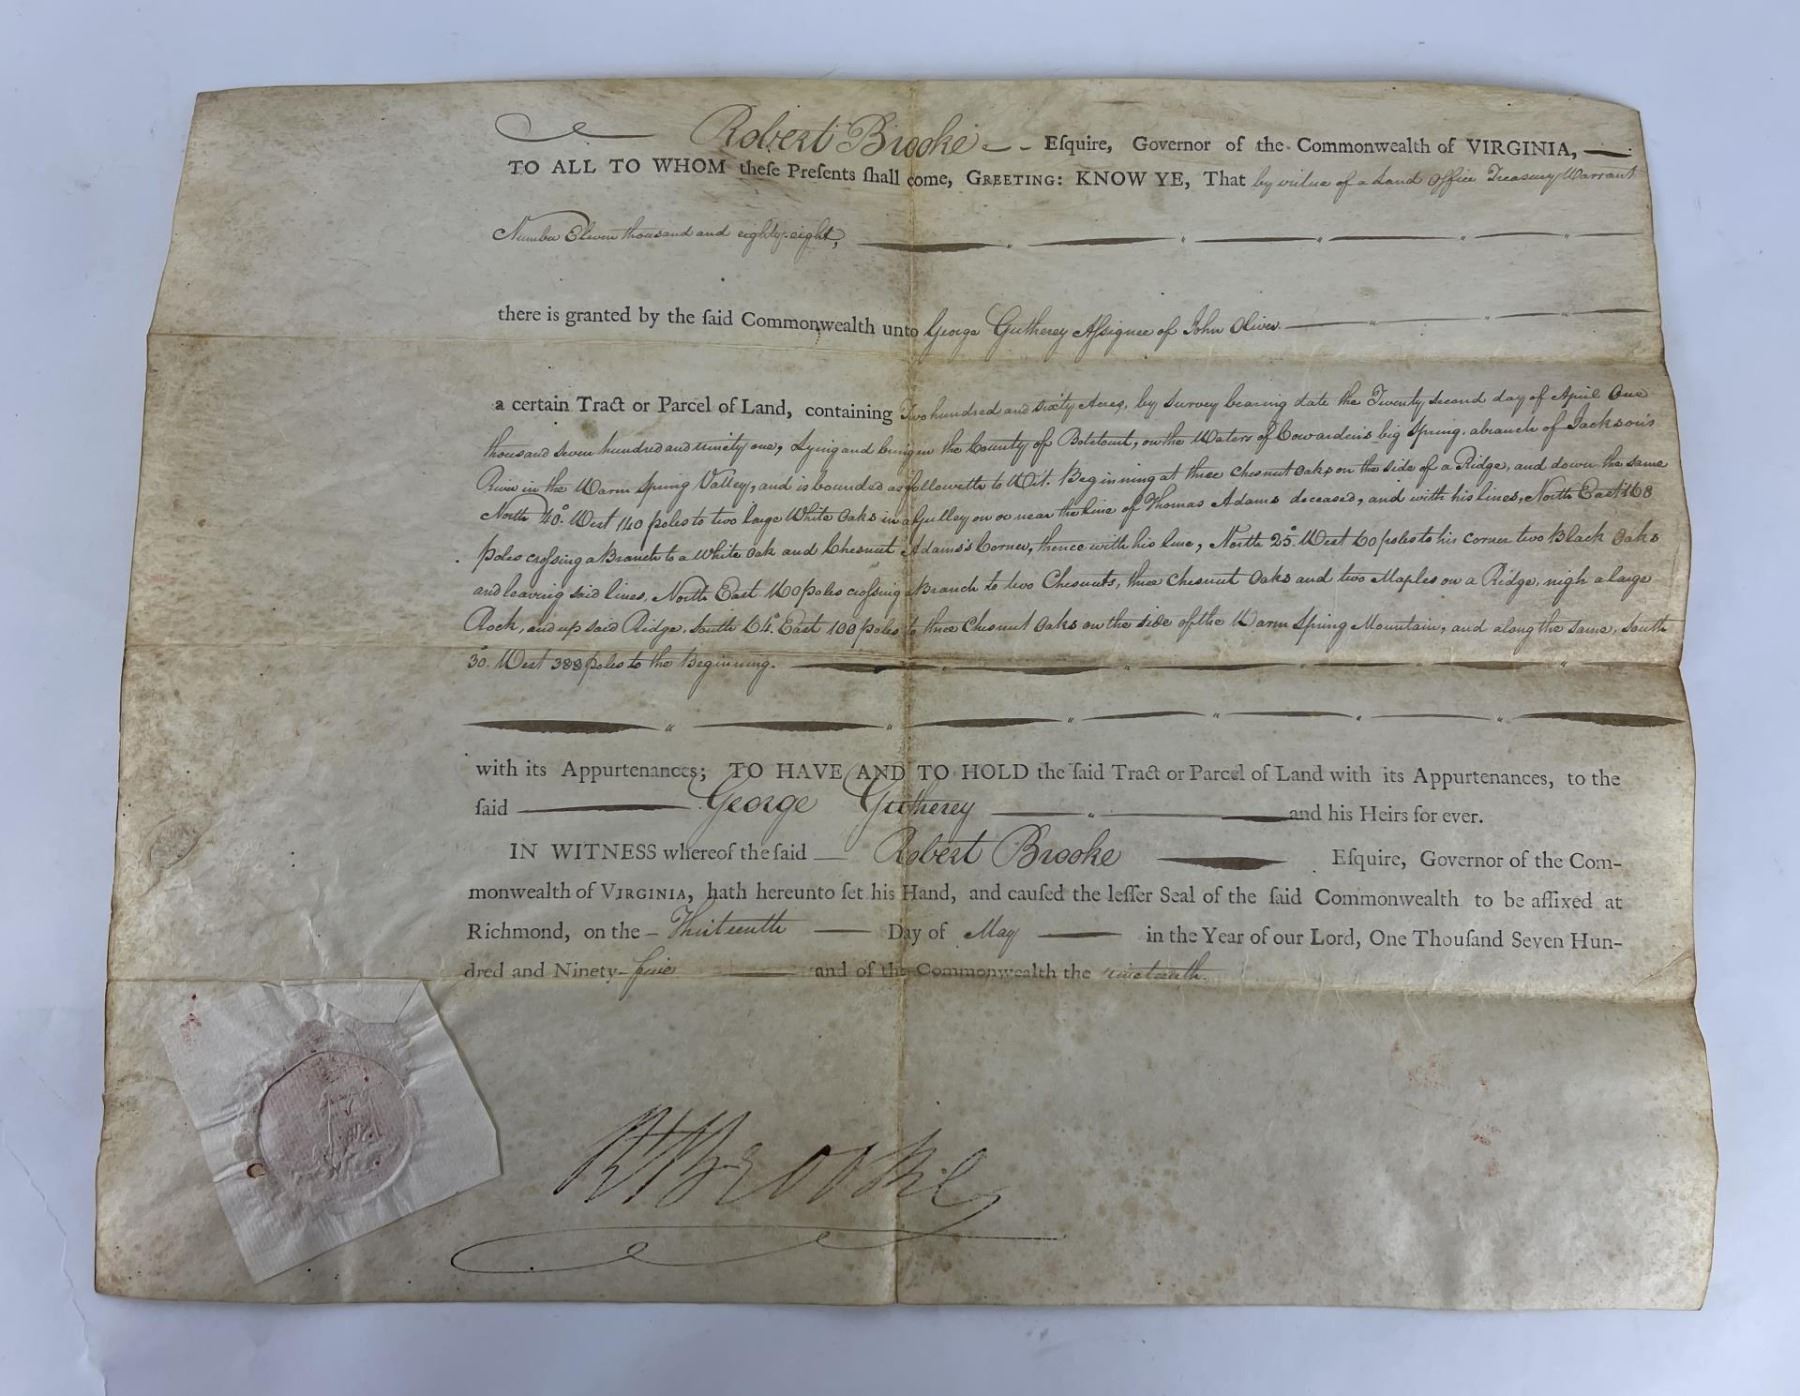 Robert Brooke Eſquire, Governor of the Commonwealth of VIRGINIA,
TO ALL TO WHOM theſe Preſents ſhall come, GREETING: KNOW YE, That by virtue of a Land Office Treasury Warrant
Number Eleven thousand and eighty eight,
there is granted by the ſaid Commonwealth unto George Gutherey Aſsignee of John Oliver
a certain Tract or Parcel of Land, containing Two hundred and sixty Acres, by survey bearing date the Twenty second day of April One
thousand seven hundred and ninety one, Lying and being in the County of Botetourt, on the Waters of Cowarden's big Spring, a branch of Jackson's
River in the Warm Spring Valley, and is bounded as followeth to Wit. Beginning at three Chesnut Oaks on the side of a Ridge, and down the same
North 40° West 140 poles to two large White Oaks in a gulley on or near the line of Thomas Adams deceased, and with his lines, North East 168
poles croſsing a Branch to a White Oak and Chesnut Adams's Corner, thence with his line, North 25° West 60 poles to his corner two Black Oaks
and leaving said lines, North East 160 poles croſsing a Branch to two Chesnuts, three Chesnut Oaks and two Maples on a Ridge, nigh a large
Rock, and up said Ridge, South 64° East 100 poles to three Chesnut Oaks on the side of the Warm Spring Mountain, and along the same, South
30° West 388 poles to the Beginning.
with its Appurtenances; TO HAVE AND TO HOLD the ſaid Tract or Parcel of Land with its Appurtenances, to the
ſaid George Gutherey and his Heirs for ever.
IN WITNESS whereof the ſaid Robert Brooke Eſquire, Governor of the Com-
monwealth of VIRGINIA, hath hereunto ſet his Hand, and cauſed the leſſer Seal of the ſaid Commonwealth to be affixed at
Richmond, on the Thirteenth Day of May in the Year of our Lord, One Thouſand Seven Hun-
dred and Ninety-five and of the Commonwealth the nineteenth.
Rt Brooke